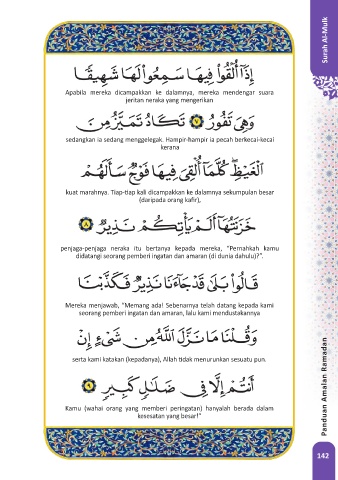 Surah Al-Mulk
إِذَآ أُلْقُوا۟ فِيهَا سَمِعُوا۟ لَهَا شَهِيقًا
Apabila mereka dicampakkan ke dalamnya, mereka mendengar suara
jeritan neraka yang mengerikan
وَهِىَ تَفُورُ ٧ تَكَادُ تَمَيَّزُ مِنَ
sedangkan ia sedang menggelegak. Hampir-hampir ia pecah berkecai-kecai
kerana
ٱلْغَيْظِ ۖ كُلَّمَآ أُلْقِىَ فِيهَا فَوْجٌ سَأَلَهُمْ
kuat marahnya. Tiap-tiap kali dicampakkan ke dalamnya sekumpulan besar
(daripada orang kafir),
خَزَنَتُهَآ أَلَمْ يَأْتِكُمْ نَذِيرٌ ٨
penjaga-penjaga neraka itu bertanya kepada mereka, "Pernahkah kamu
didatangi seorang pemberi ingatan dan amaran (di dunia dahulu)?".
قَالُوا۟ بَلَىٰ قَدْ جَآءَنَا نَذِيرٌ فَكَذَّبْنَا
Mereka menjawab, "Memang ada! Sebenarnya telah datang kepada kami
seorang pemberi ingatan dan amaran, lalu kami mendustakannya
وَقُلْنَا مَا نَزَّلَ ٱللَّهُ مِن شَىْءٍ إِنْ
serta kami katakan (kepadanya), Allah tidak menurunkan sesuatu pun.
أَنتُمْ إِلَّا فِى ضَلَٰلٍ كَبِيرٍ ٩
Kamu (wahai orang yang memberi peringatan) hanyalah berada dalam
kesesatan yang besar!"
Panduan Amalan Ramadan
142